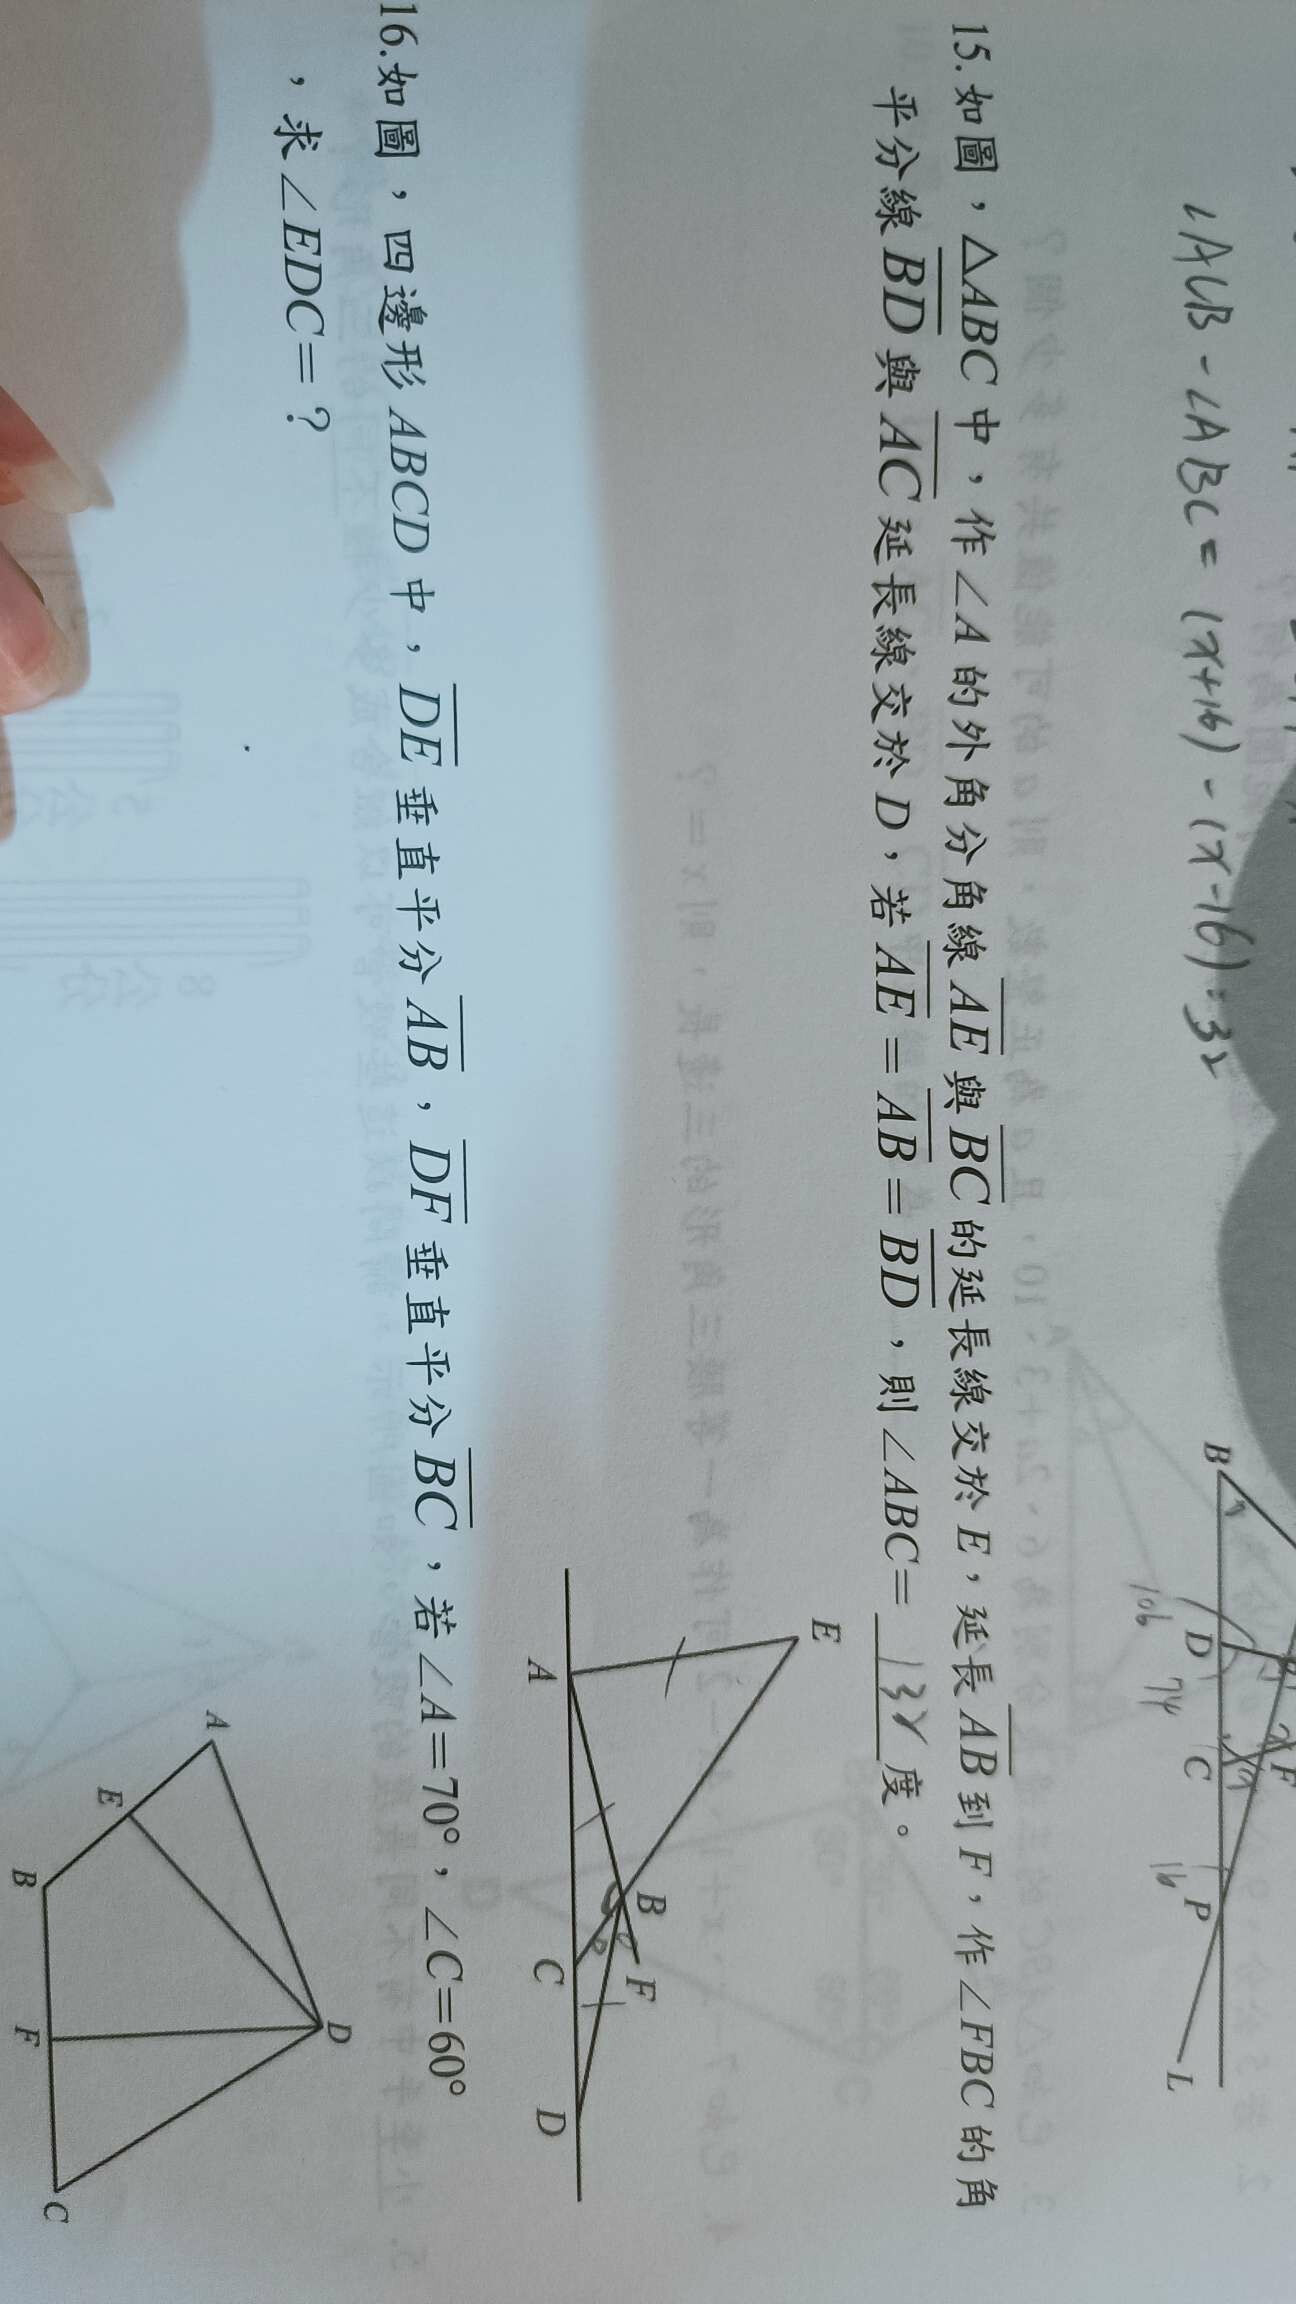 ∠ACB - ∠ABC = (x+16) - (x-16) = 32
B
D
C
P
F
L
106
74
16
15.如圖，△ABC 中，作∠A 的外角分角線 AE 與 BC 的延長線交於 E，延長 AB 到 F，作∠FBC 的角
平分線 BD 與 AC 延長線交於 D，若 AE = AB = BD，則∠ABC= 度。
E
A
B
F
C
D
16.如圖，四邊形 ABCD 中，DE 垂直平分 AB，DF 垂直平分 BC，若∠A=70°，∠C=60°
，求∠EDC=？
A
D
E
B
F
C